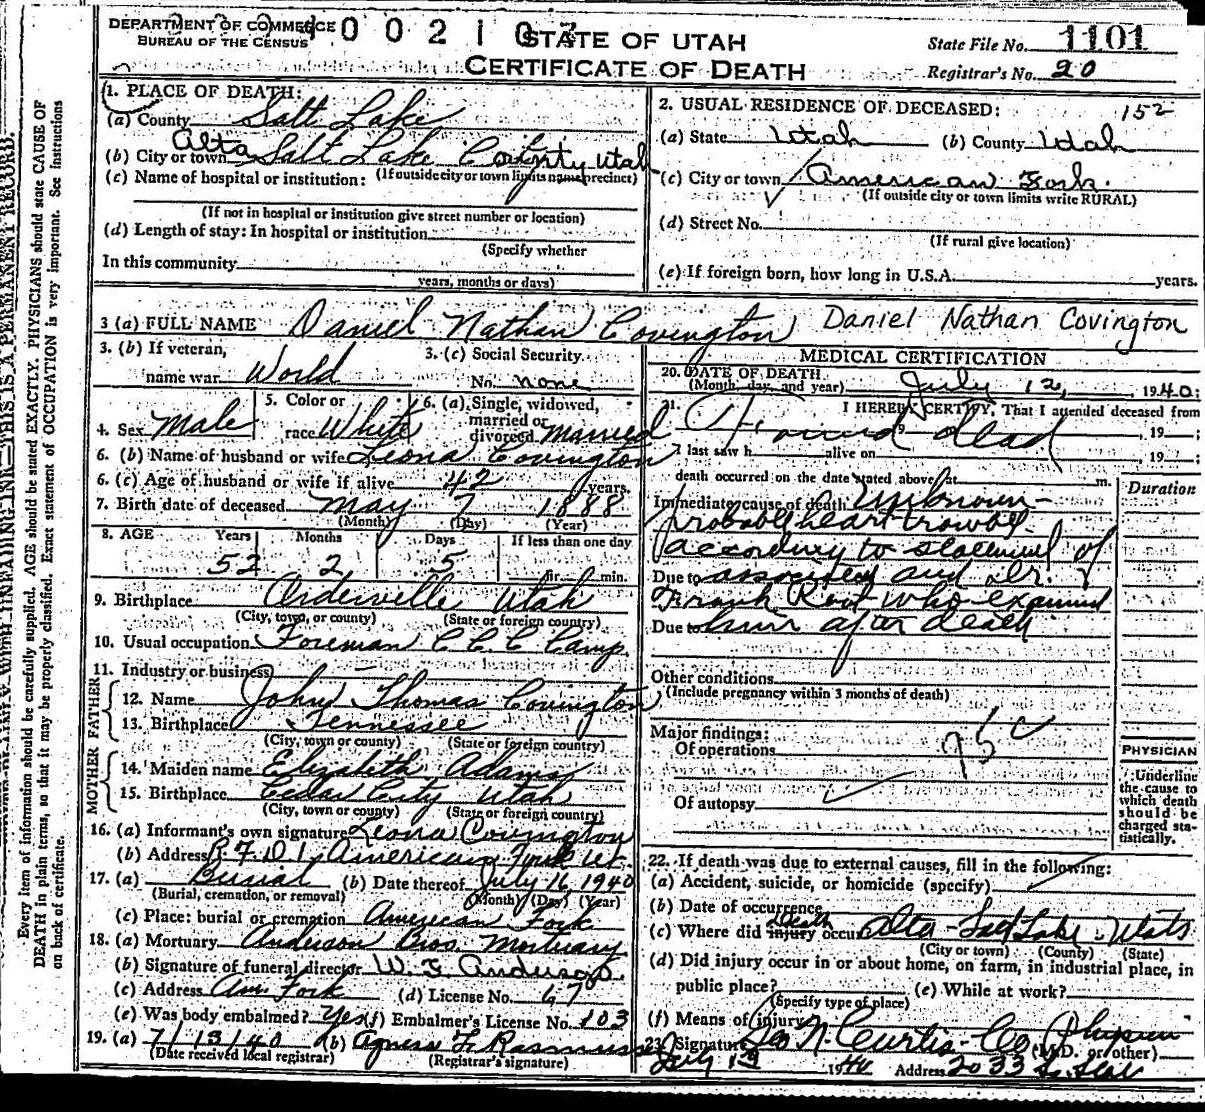 DEPARTMENT OF COMMERCE
BUREAU OF THE CENSUS
STATE OF UTAH
CERTIFICATE OF DEATH
State File No. 1101
Registrar's No. 20
1. PLACE OF DEATH:
(a) County Salt Lake
Alta
(b) City or town Salt Lake County Utah
(If outside city or town limits name precinct)
(c) Name of hospital or institution:
(If not in hospital or institution give street number or location)
(d) Length of stay: In hospital or institution
(Specify whether
In this community
years, months or days)
2. USUAL RESIDENCE OF DECEASED: 152
(a) State Utah (b) County Utah
(c) City or town American Fork.
(If outside city or town limits write RURAL)
(d) Street No.
(If rural give location)
(e) If foreign born, how long in U.S.A. years.
3 (a) FULL NAME Daniel Nathan Covington Daniel Nathan Covington
3. (b) If veteran, name war World
3. (c) Social Security No. none
4. Sex Male
5. Color or race White
6. (a) Single, widowed, married or divorced Married
6. (b) Name of husband or wife Leona Covington
6. (c) Age of husband or wife if alive 42 years
7. Birth date of deceased May 7 1888
(Month) (Day) (Year)
8. AGE Years Months Days If less than one day
52 2 5 hr. min.
9. Birthplace Orderville Utah
(City, town, or county) (State or foreign country)
10. Usual occupation Foreman C C C Camp.
11. Industry or business
FATHER
12. Name John Thomas Covington
13. Birthplace Tennessee
(City, town or county) (State or foreign country)
MOTHER
14. Maiden name Elizabeth Adams
15. Birthplace Cedar City Utah
(City, town or county) (State or foreign country)
16. (a) Informant's own signature Leona Covington
(b) Address R.F.D 1, American Fork Ut.
17. (a) Burial (b) Date thereof July 16, 1940
(Burial, cremation, or removal) (Month) (Day) (Year)
(c) Place: burial or cremation American Fork
18. (a) Mortuary Anderson Bros. Mortuary
(b) Signature of funeral director W. E. Anderson.
(c) Address Am. Fork (d) License No. 67
(e) Was body embalmed? Yes (f) Embalmer's License No. 103
19. (a) 7/13/40 (b) Agnes F. Rasmussen
(Date received local registrar) (Registrar's signature)
MEDICAL CERTIFICATION
20. DATE OF DEATH
(Month, day, and year) July 12, 1940;
21. I HEREBY CERTIFY, That I attended deceased from
Found dead , 19 ;
I last saw h alive on , 19 ;
death occurred on the date stated above, at m.
Duration
Immediate cause of death Unknown -
probable heart trouble
according to statement of
Due to associates and Dr.
Frank Root who examined
Due to him after death
Other conditions
(Include pregnancy within 3 months of death)
Major findings:
Of operations
95 c
Of autopsy
PHYSICIAN
Underline the cause to which death should be charged statistically.
22. If death was due to external causes, fill in the following:
(a) Accident, suicide, or homicide (specify)
(b) Date of occurrence
(c) Where did injury occur Death Alta - Salt Lake - Utah
(City or town) (County) (State)
(d) Did injury occur in or about home, on farm, in industrial place, in
public place? (e) While at work?
(Specify type of place)
(f) Means of injury
23. Signature N. Curtis - Co Physician
(M.D. or other)
July 13 1940 Address 2033 So. State
Every item of information should be carefully supplied. AGE should be stated EXACTLY. PHYSICIANS should state CAUSE OF
DEATH in plain terms, so that it may be properly classified. Exact statement of OCCUPATION is very important. See instructions
on back of certificate.